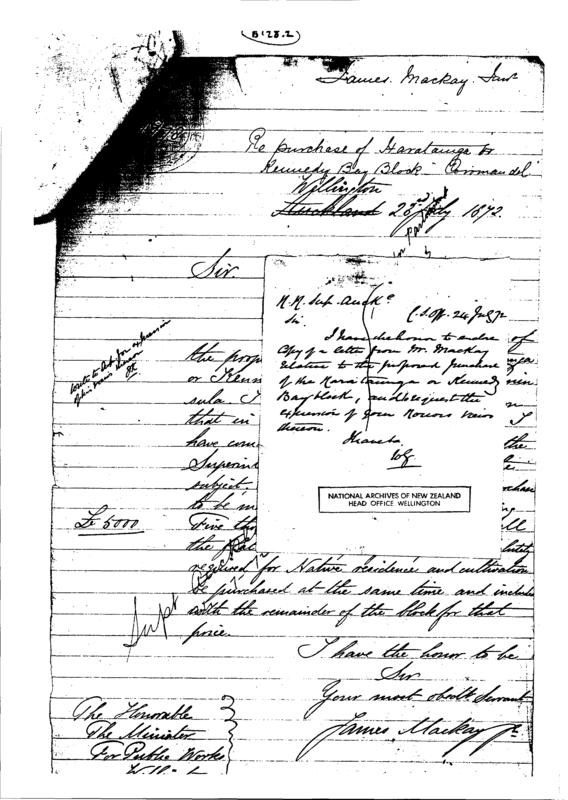 B128.2
James Mackay Junr
Re purchase of Harataunga or
Kennedy Bay Block - Coromandel
Wellington
Auckland 23rd July 1872
Sir
H.H. Sup. Auckd
C.S. Off. 24 July 72
Sir.
I have the honor to enclose
Copy of a letter from Mr. Mackay
relative to the proposed purchase
of the Harataunga or Kennedy
Bay block, and to request the
expression of Your Honors views
thereon.
I have &c.
WG
NATIONAL ARCHIVES OF NEW ZEALAND
HEAD OFFICE WELLINGTON
write to ask for expression
of his views thereon
the prop
or Kenn
sula. I
that in
have com
Superint
subject.
to be m
£ 5000
Five tho
the
of
I
the
chase
required for Native residence and cultivation
be purchased at the same time and include
with the remainder of the block for that
price.
Supt
I have the honor to be
Sir
Your most obedt. Servant
James Mackay Jr
The Honorable
The Minister
For Public Works